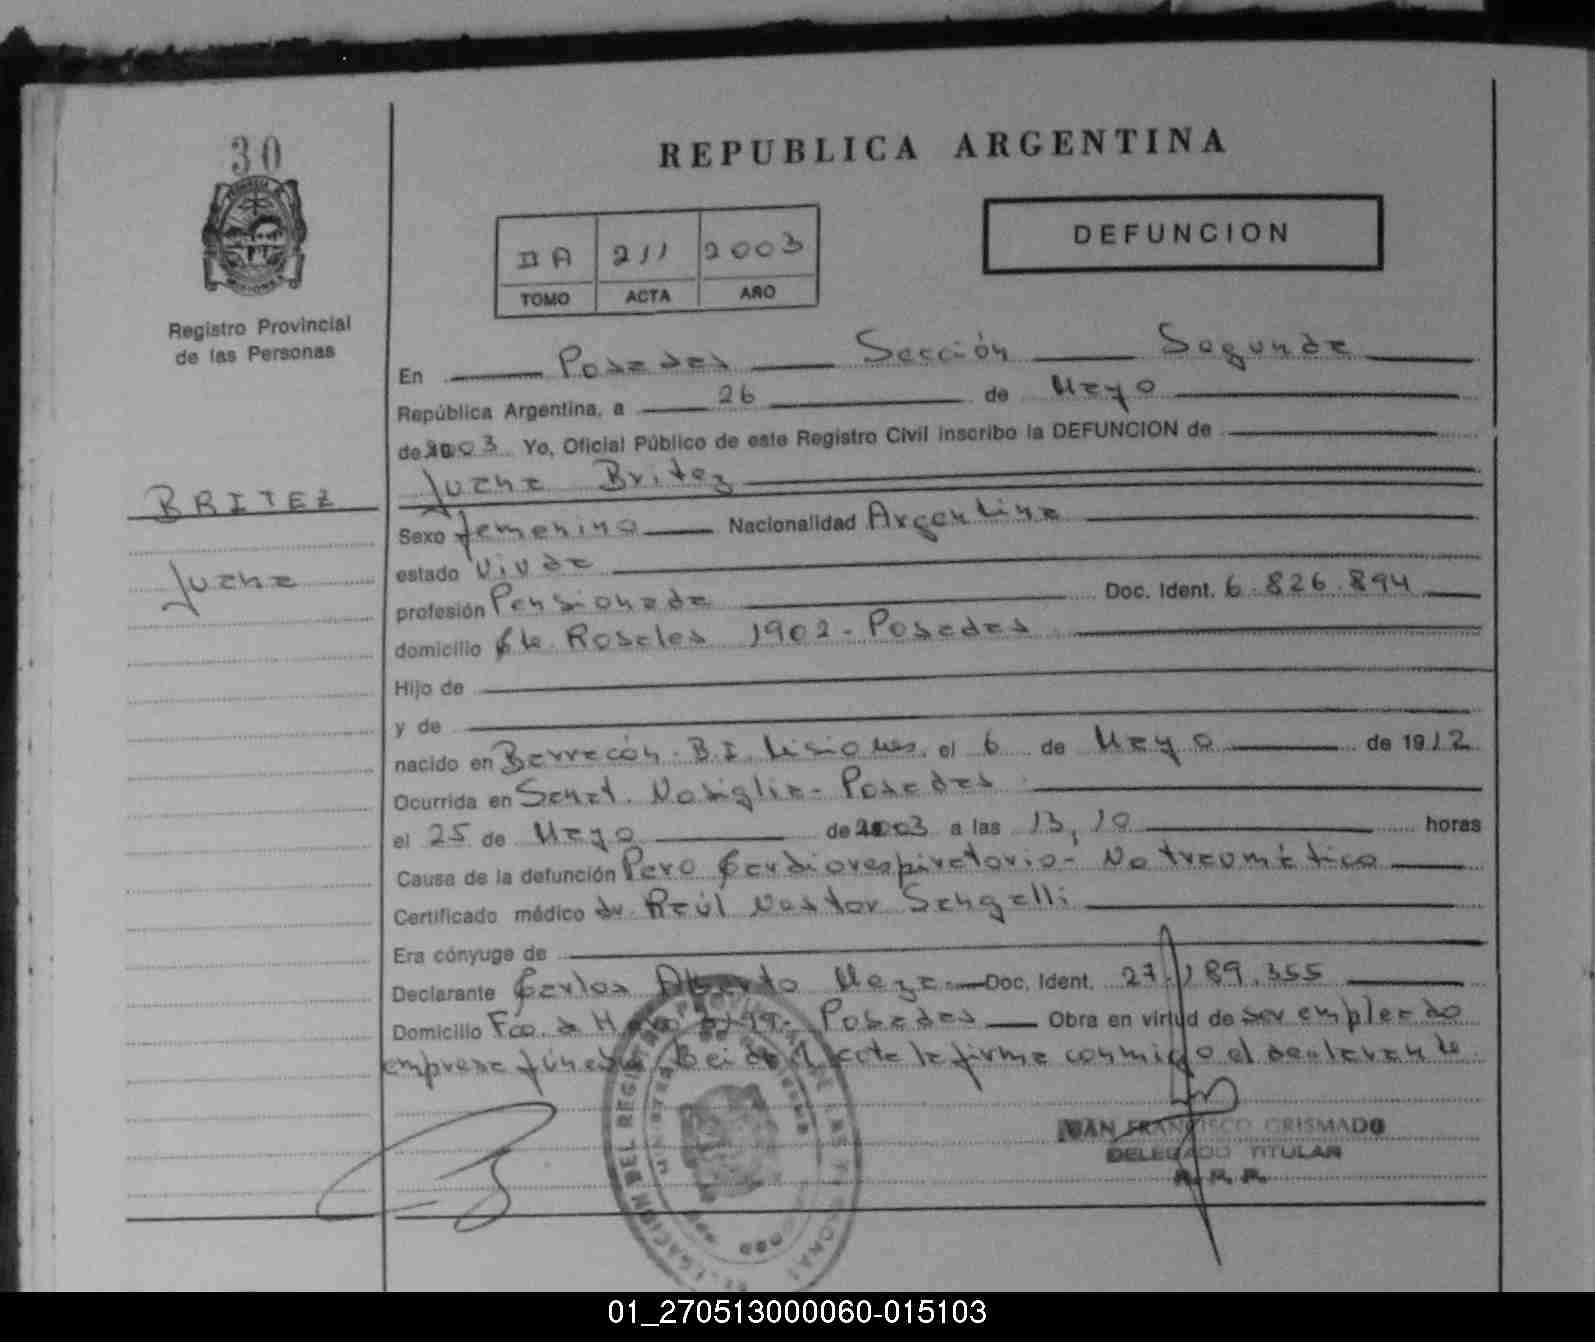 30
REPUBLICA ARGENTINA
DEFUNCION
II A 211 2003
TOMO ACTA AÑO
Registro Provincial
de las Personas
En Posadas Sección Segunda
República Argentina, a 26 de Mayo
de 2003 Yo, Oficial Público de este Registro Civil inscribo la DEFUNCION de
Juana Britez
BRITEZ
Juana
Sexo femenino Nacionalidad Argentina
estado Viuda
profesión Pensionada Doc. Ident. 6.826.894
domicilio Roseles 1902 - Posadas
Hijo de
y de
nacido en Barracón. B.I. Misiones, el 6 de Mayo de 1912
Ocurrida en Sanat. Nosiglia - Posadas
el 25 de Mayo de 2003 a las 13,10 horas
Causa de la defunción Paro Cardiorespiratorio - No traumático
Certificado médico dr. Raúl Nestor Sangalli
Era cónyuge de
Declarante Carlos Alberto Meza Doc. Ident. 27.189.355
Domicilio Fco. de H Posadas Obra en virtud de ser empleado
empresa acta la firma conmigo el declarante
JUAN FRANCISCO GRISMADO
DELEGADO TITULAR
R. P. P.
DELEGACION DEL REGISTRO PROVINCIAL DE LAS PERSONAS
01_270513000060-015103